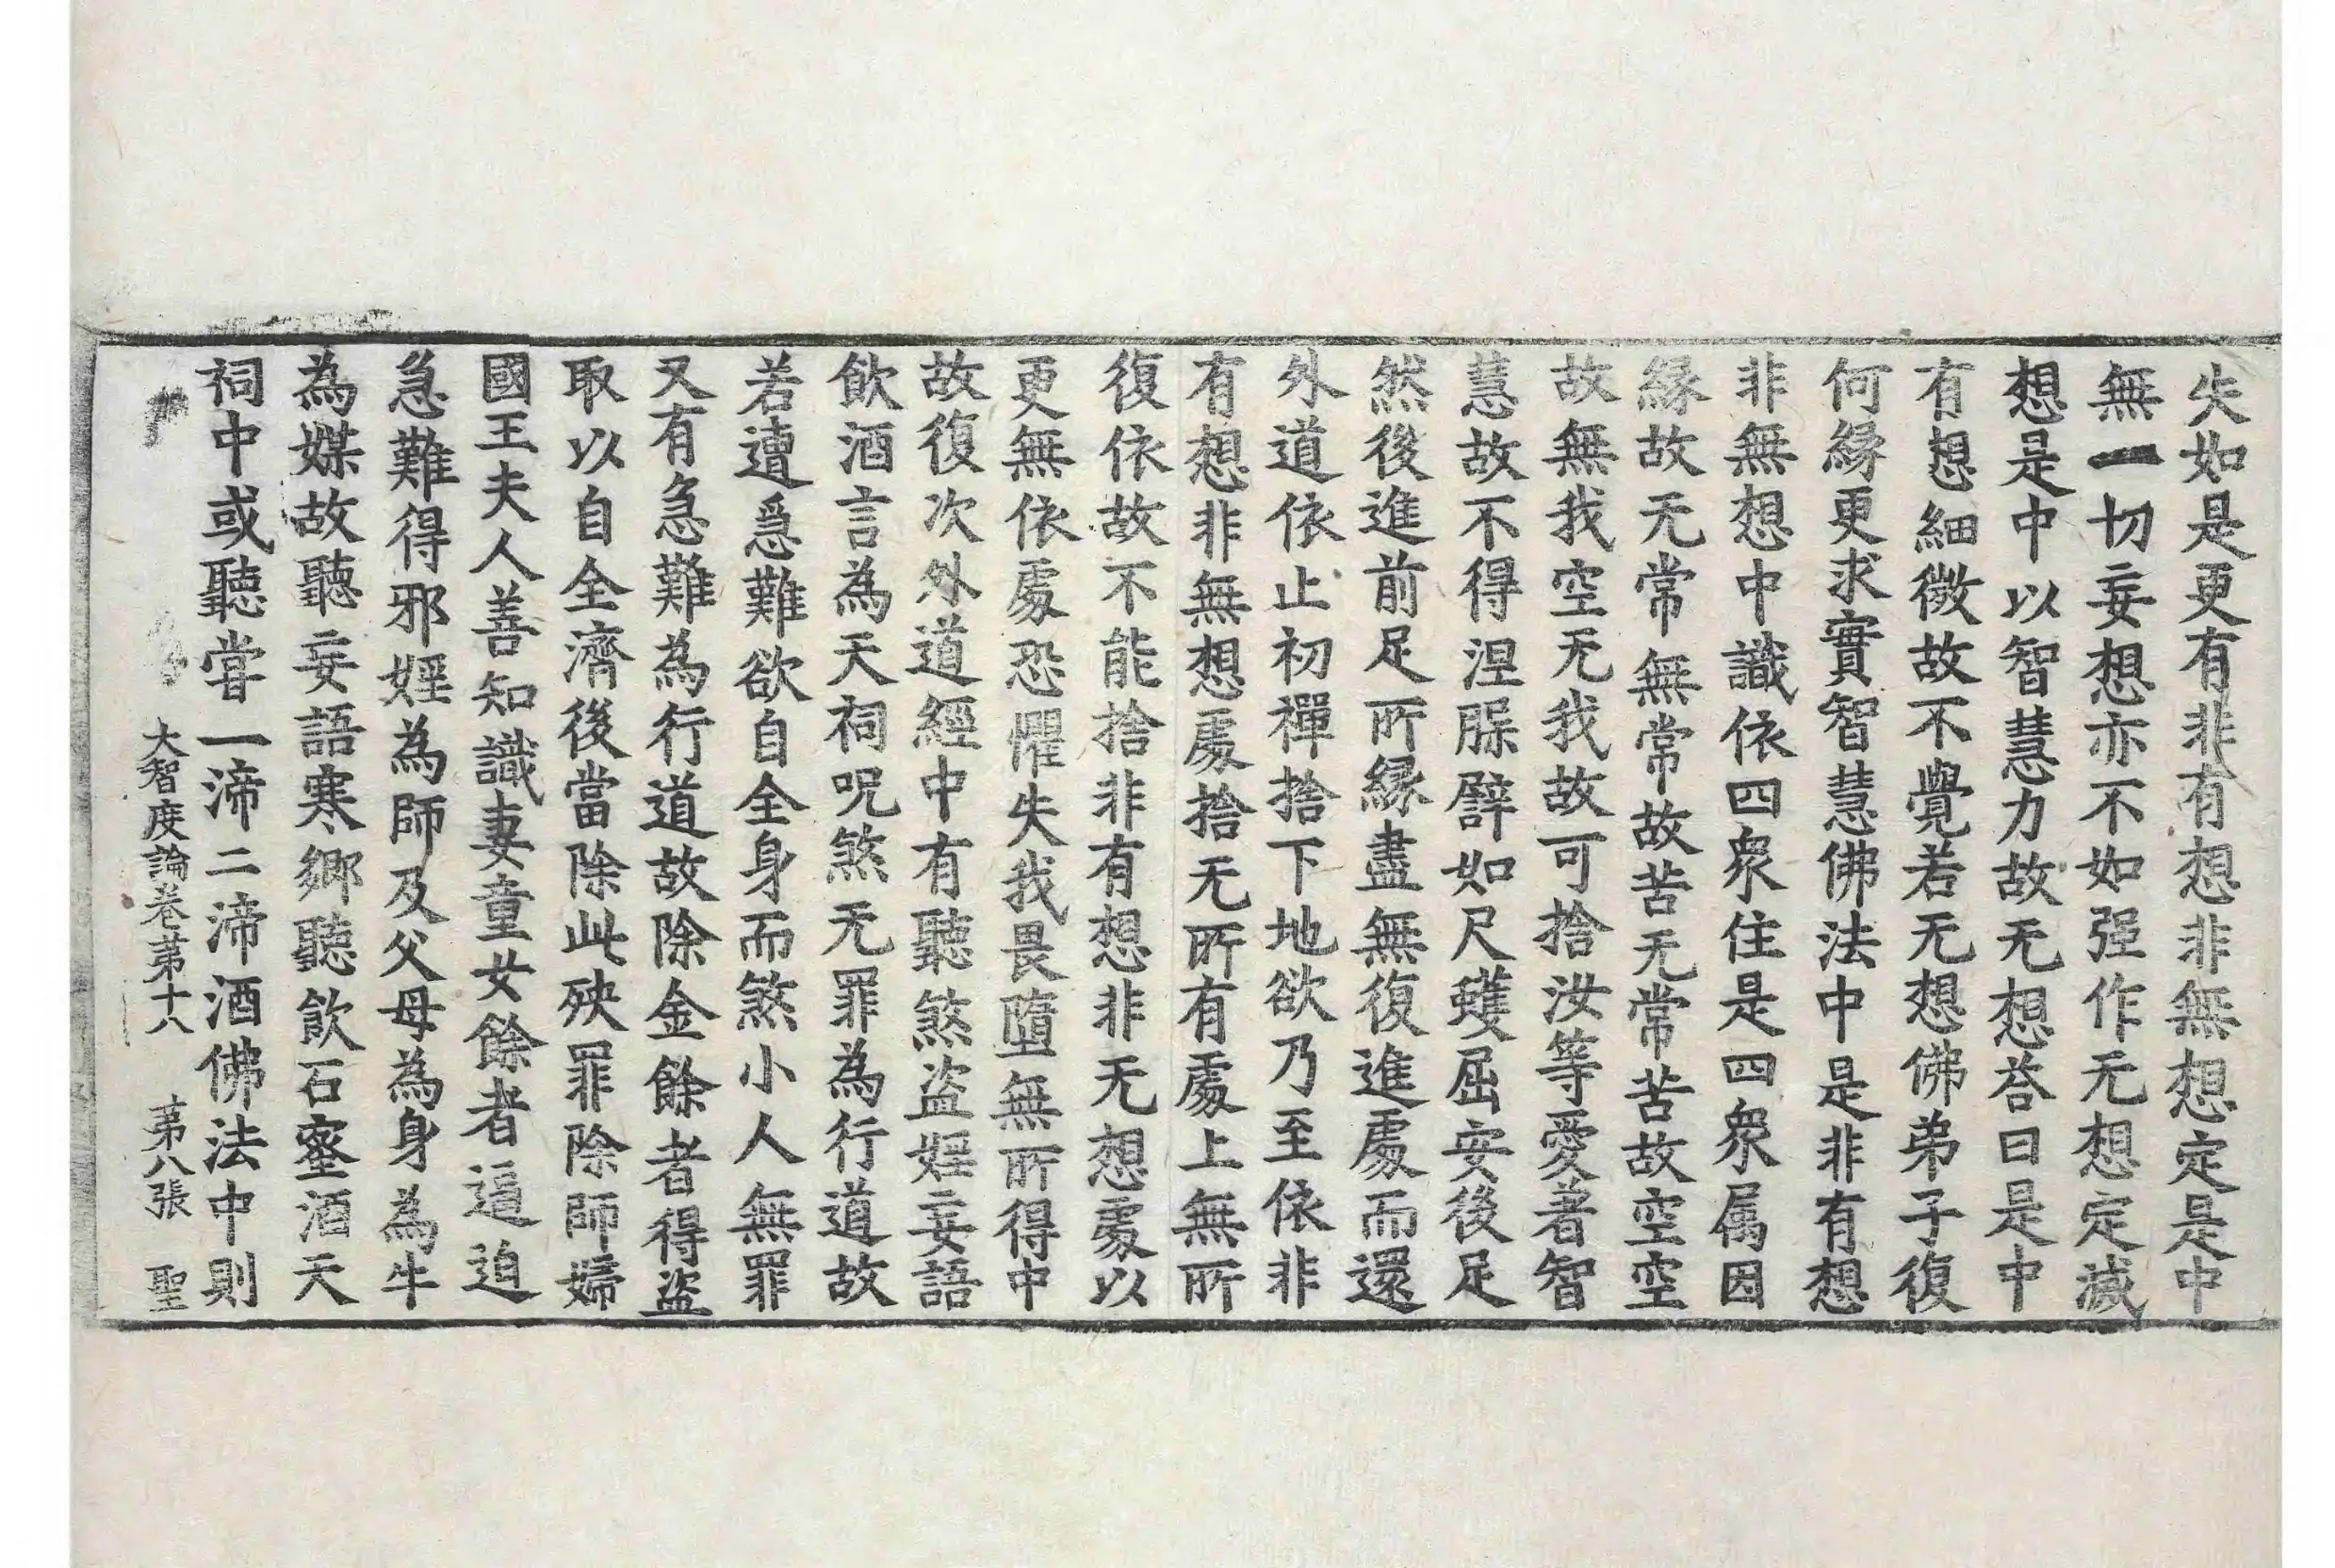 失如是更有非有想非無想定是中
無一切妄想亦不如强作无想定滅
想是中以智慧力故无想荅曰是中
有想細微故不覺若无想佛弟子復
何縁更求實智慧佛法中是非有想
非無想中識依四衆住是四衆属因
縁故无常無常故苦无常苦故空空
故無我空无我故可捨汝等愛著智
慧故不得涅槃譬如尺蠖屈安後足
然後進前足所縁盡無復進處而還
外道依止初禪捨下地欲乃至依非
有想非無想處捨无所有處上無所
復依故不能捨非有想非无想處以
更無依處恐懼失我畏墮無所得中
故復次外道經中有聽煞盗婬妄語
飲酒言為天祠呪煞无罪為行道故
若遭急難欲自全身而煞小人無罪
又有急難為行道故除金餘者得盗
取以自全濟後當除此殃罪除師婦
國王夫人善知識妻童女餘者逼迫
急難得邪婬為師及父母為身為牛
為媒故聽妄語寒鄉聽飲石蜜酒天
祠中或聽甞一渧二渧酒佛法中則
大智度論卷第十八 第八張 聖